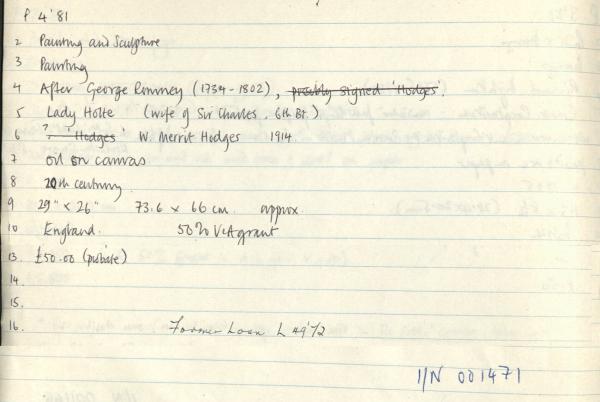 P 4'81
2 Painting and Sculpture
3 Painting
4 After George Romney (1734-1802), possibly signed 'Hodges'.
5 Lady Holte (wife of Sir Charles, 6th Bt.)
6 ? 'Hodges' W. Merrit Hodges 1914.
7 oil on canvas
8 20th century.
9 29" x 26" 73.6 x 66 cm. approx.
10 England. 50% V&A grant
13. £50.00 (probate)
14.
15.
16. Former Loan L 49'72
I/N 001471